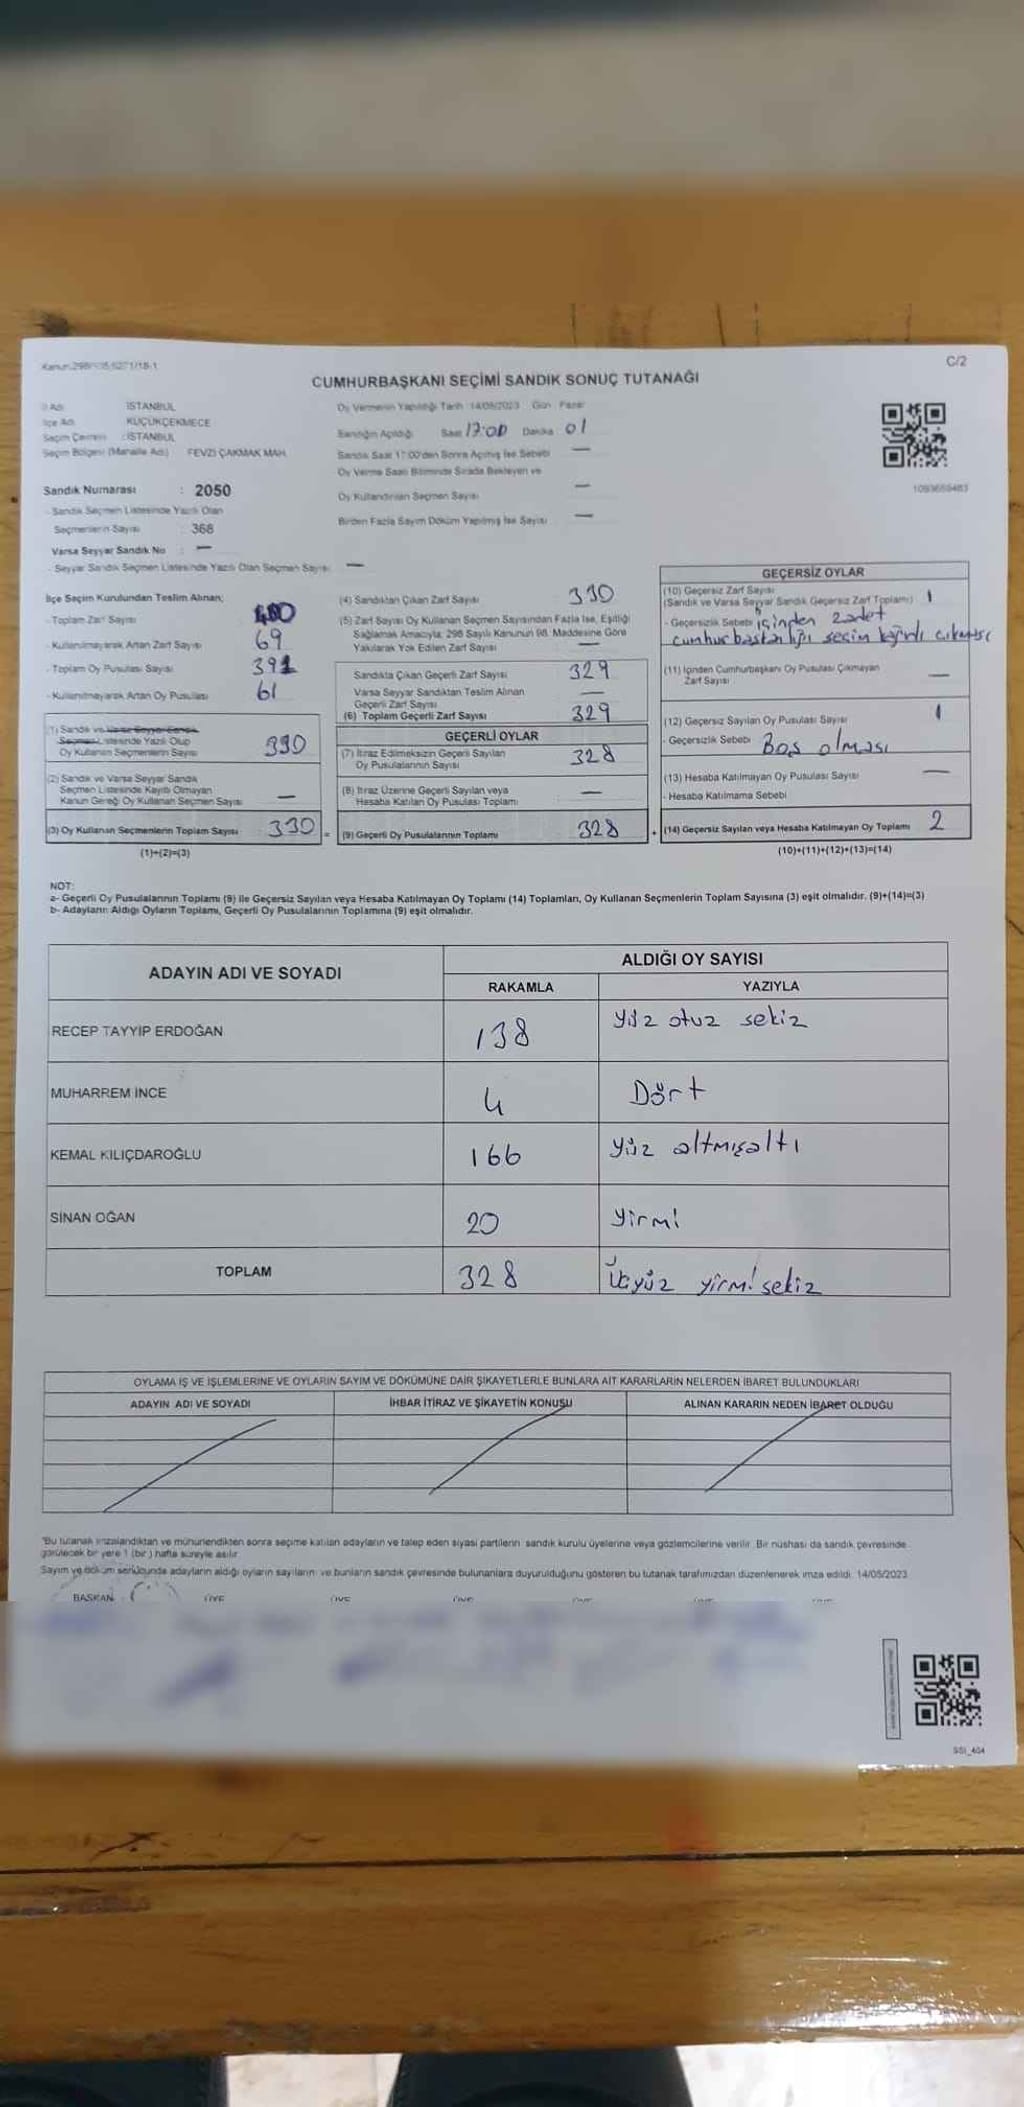 C/2
CUMHURBAŞKANI SEÇİMİ SANDIK SONUÇ TUTANAĞI
İl Adı : İSTANBUL
İlçe Adı : KÜÇÜKÇEKMECE
Seçim Çevresi : İSTANBUL
Seçim Bölgesi (Mahalle Adı) : FEVZİ ÇAKMAK MAH.
Sandık Numarası : 2050
- Sandık Seçmen Listesinde Yazılı Olan
Seçmenlerin Sayısı : 368
Varsa Seyyar Sandık No : —
- Seyyar Sandık Seçmen Listesinde Yazılı Olan Seçmen Sayısı : —
Oy Vermenin Yapıldığı Tarih : 14/05/2023 Gün : Pazar
Sandığın Açıldığı Saat 17:00 Dakika 01
Sandık Saat 17:00'den Sonra Açılmış İse Sebebi —
Oy Verme Saati Bitiminde Sırada Bekleyen ve
Oy Kullandırılan Seçmen Sayısı —
Birden Fazla Sayım Döküm Yapılmış İse Sayısı —
1093659483
İlçe Seçim Kurulundan Teslim Alınan;
- Toplam Zarf Sayısı 400
- Kullanılmayarak Artan Zarf Sayısı 69
- Toplam Oy Pusulası Sayısı 391
- Kullanılmayarak Artan Oy Pusulası 61
(1) Sandık ve Varsa Seyyar Sandık
Seçmen Listesinde Yazılı Olup
Oy Kullanan Seçmenlerin Sayısı 330
(2) Sandık ve Varsa Seyyar Sandık
Seçmen Listesinde Kayıtlı Olmayan
Kanun Gereği Oy Kullanan Seçmen Sayısı —
(3) Oy Kullanan Seçmenlerin Toplam Sayısı 330 =
(1)+(2)=(3)
(4) Sandıktan Çıkan Zarf Sayısı 330
(5) Zarf Sayısı Oy Kullanan Seçmen Sayısından Fazla İse, Eşitliği
Sağlamak Amacıyla; 298 Sayılı Kanunun 98. Maddesine Göre
Yakılarak Yok Edilen Zarf Sayısı —
Sandıkta Çıkan Geçerli Zarf Sayısı 329
Varsa Seyyar Sandıktan Teslim Alınan
Geçerli Zarf Sayısı —
(6) Toplam Geçerli Zarf Sayısı 329
GEÇERLİ OYLAR
(7) İtiraz Edilmeksizin Geçerli Sayılan
Oy Pusulalarının Sayısı 328
(8) İtiraz Üzerine Geçerli Sayılan veya
Hesaba Katılan Oy Pusulası Toplamı —
(9) Geçerli Oy Pusulalarının Toplamı 328 +
GEÇERSİZ OYLAR
(10) Geçersiz Zarf Sayısı
(Sandık ve Varsa Seyyar Sandık Geçersiz Zarf Toplamı) 1
- Geçersizlik Sebebi içinden 2 adet
cumhurbaşkanlığı seçim kağıdı çıkması
(11) İçinden Cumhurbaşkanı Oy Pusulası Çıkmayan
Zarf Sayısı —
(12) Geçersiz Sayılan Oy Pusulası Sayısı 1
- Geçersizlik Sebebi Boş olması
(13) Hesaba Katılmayan Oy Pusulası Sayısı —
- Hesaba Katılmama Sebebi
(14) Geçersiz Sayılan veya Hesaba Katılmayan Oy Toplamı 2
(10)+(11)+(12)+(13)=(14)
NOT:
a- Geçerli Oy Pusulalarının Toplamı (9) ile Geçersiz Sayılan veya Hesaba Katılmayan Oy Toplamı (14) Toplamları, Oy Kullanan Seçmenlerin Toplam Sayısına (3) eşit olmalıdır. (9)+(14)=(3)
b- Adayların Aldığı Oyların Toplamı, Geçerli Oy Pusulalarının Toplamına (9) eşit olmalıdır.
ADAYIN ADI VE SOYADI ALDIĞI OY SAYISI
RAKAMLA YAZIYLA
RECEP TAYYİP ERDOĞAN 138 Yüz otuz sekiz
MUHARREM İNCE 4 Dört
KEMAL KILIÇDAROĞLU 166 Yüz altmışaltı
SİNAN OĞAN 20 Yirmi
TOPLAM 328 Üçyüz yirmi sekiz
OYLAMA İŞ VE İŞLEMLERİNE VE OYLARIN SAYIM VE DÖKÜMÜNE DAİR ŞİKAYETLERLE BUNLARA AİT KARARLARIN NELERDEN İBARET BULUNDUKLARI
ADAYIN ADI VE SOYADI İHBAR İTİRAZ VE ŞİKAYETİN KONUSU ALINAN KARARIN NEDEN İBARET OLDUĞU
*Bu tutanak imzalandıktan ve mühürlendikten sonra seçime katılan adayların ve talep eden siyasi partilerin sandık kurulu üyelerine veya gözlemcilerine verilir. Bir nüshası da sandık çevresinde
görülecek bir yere 1 (bir) hafta süreyle asılır.
Sayım ve döküm sonucunda adayların aldığı oyların sayılarını ve bunların sandık çevresinde bulunanlara duyurulduğunu gösteren bu tutanak tarafımızdan düzenlenerek imza edildi. 14/05/2023
BAŞKAN ÜYE ÜYE ÜYE
SSI_404